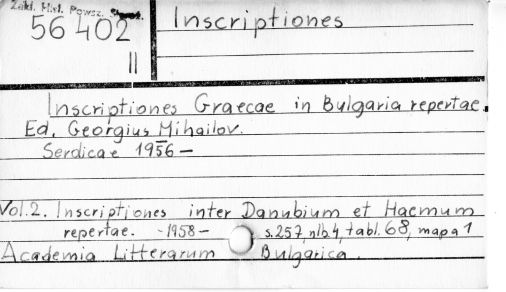 Zakł. Hist. Powsz.
56 402
II
Inscriptiones
Inscriptiones Graecae in Bulgaria repertae.
Ed. Georgius Mihailov.
Serdicae 1956 —
Vol. 2. Inscriptiones inter Danubium et Haemum
repertae. - 1958 - s. 257, nlb 4, tabl. 68, mapa 1
Academia Litterarum Bulgarica.